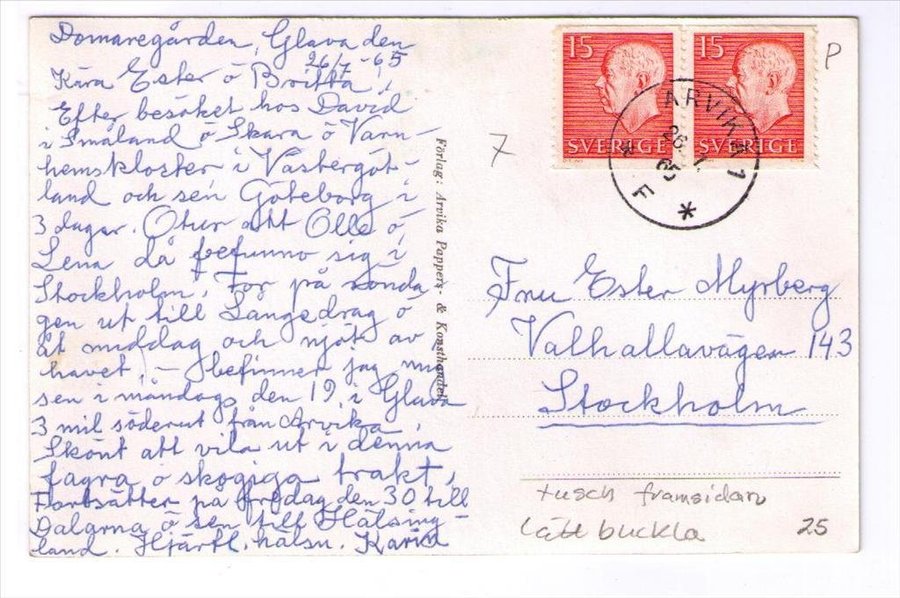 Domaregården, Glava den
26/7 -65
Kära Ester ö Britta!
Efter besöket hos David
i Småland ö Skara ö Varn-
hemskloster i Västergöt-
land och sen Göteborg i
3 dagar. Otur att Olle ö
Lena då befunno sig i
Stockholm. For på sönda-
gen ut till Långedrag ö
åt middag och njöt av
havet, – befinner jag mig
sen i måndags den 19 i Glava
3 mil söderut från Arvika.
Skönt att vila ut i denna
fagra ö skogiga trakt.
Fortsätter på fredag den 30 till
Dalarna ö sen till Hälsing-
land. Hjärtl. hälsn. Karin
Förlag: Arvika Pappers- & Konsthandel
15 15
SVERIGE SVERIGE
ARVIKA 1
26 7
65
* F *
P
7
Fru Ester Myrberg
Valhallavägen 143
Stockholm
tusch framsidan
lätt buckla
25